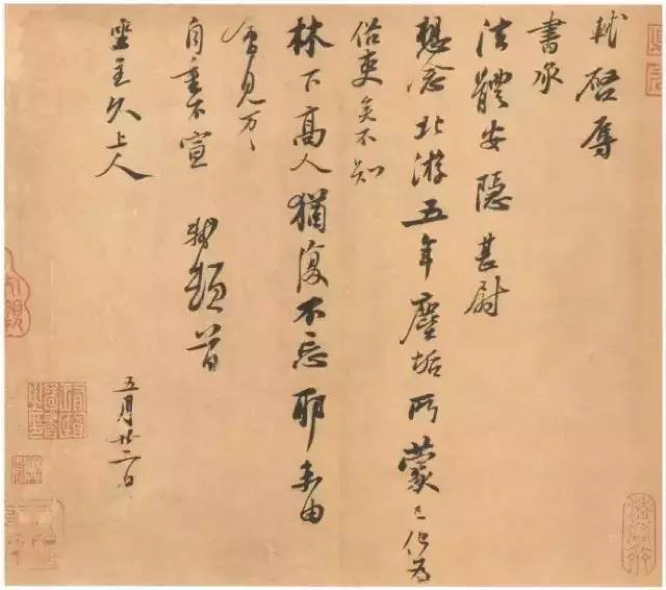 軾啓辱
書承
法體安隱甚尉
想念北游五年塵垢所蒙已化爲
俗吏矣不知
林下高人猶復不忘耶未由
會見万〻
自重不宣 軾頓首
坐主久上人
五月廿二日